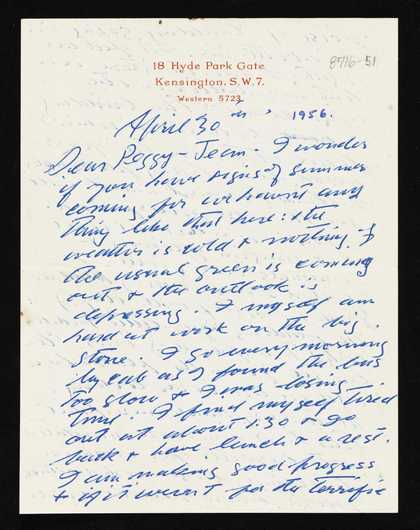 8716-51
18 Hyde Park Gate
Kensington. S.W.7.
Western 5723
April 30th, 1956.
Dear Peggy-Jean. I wonder
if you have signs of summer
coming for we havent any
thing like that here: the
weather is cold & nothing of
the usual green is coming
out & the outlook is
depressing. I myself am
hard at work on the big
stone. I go every morning
by cab as I found the bus
too slow & I was losing
time. I find myself tired
out at about 1.30 & go
back & have lunch & a rest.
I am making good progress
& if it werent for the terrific